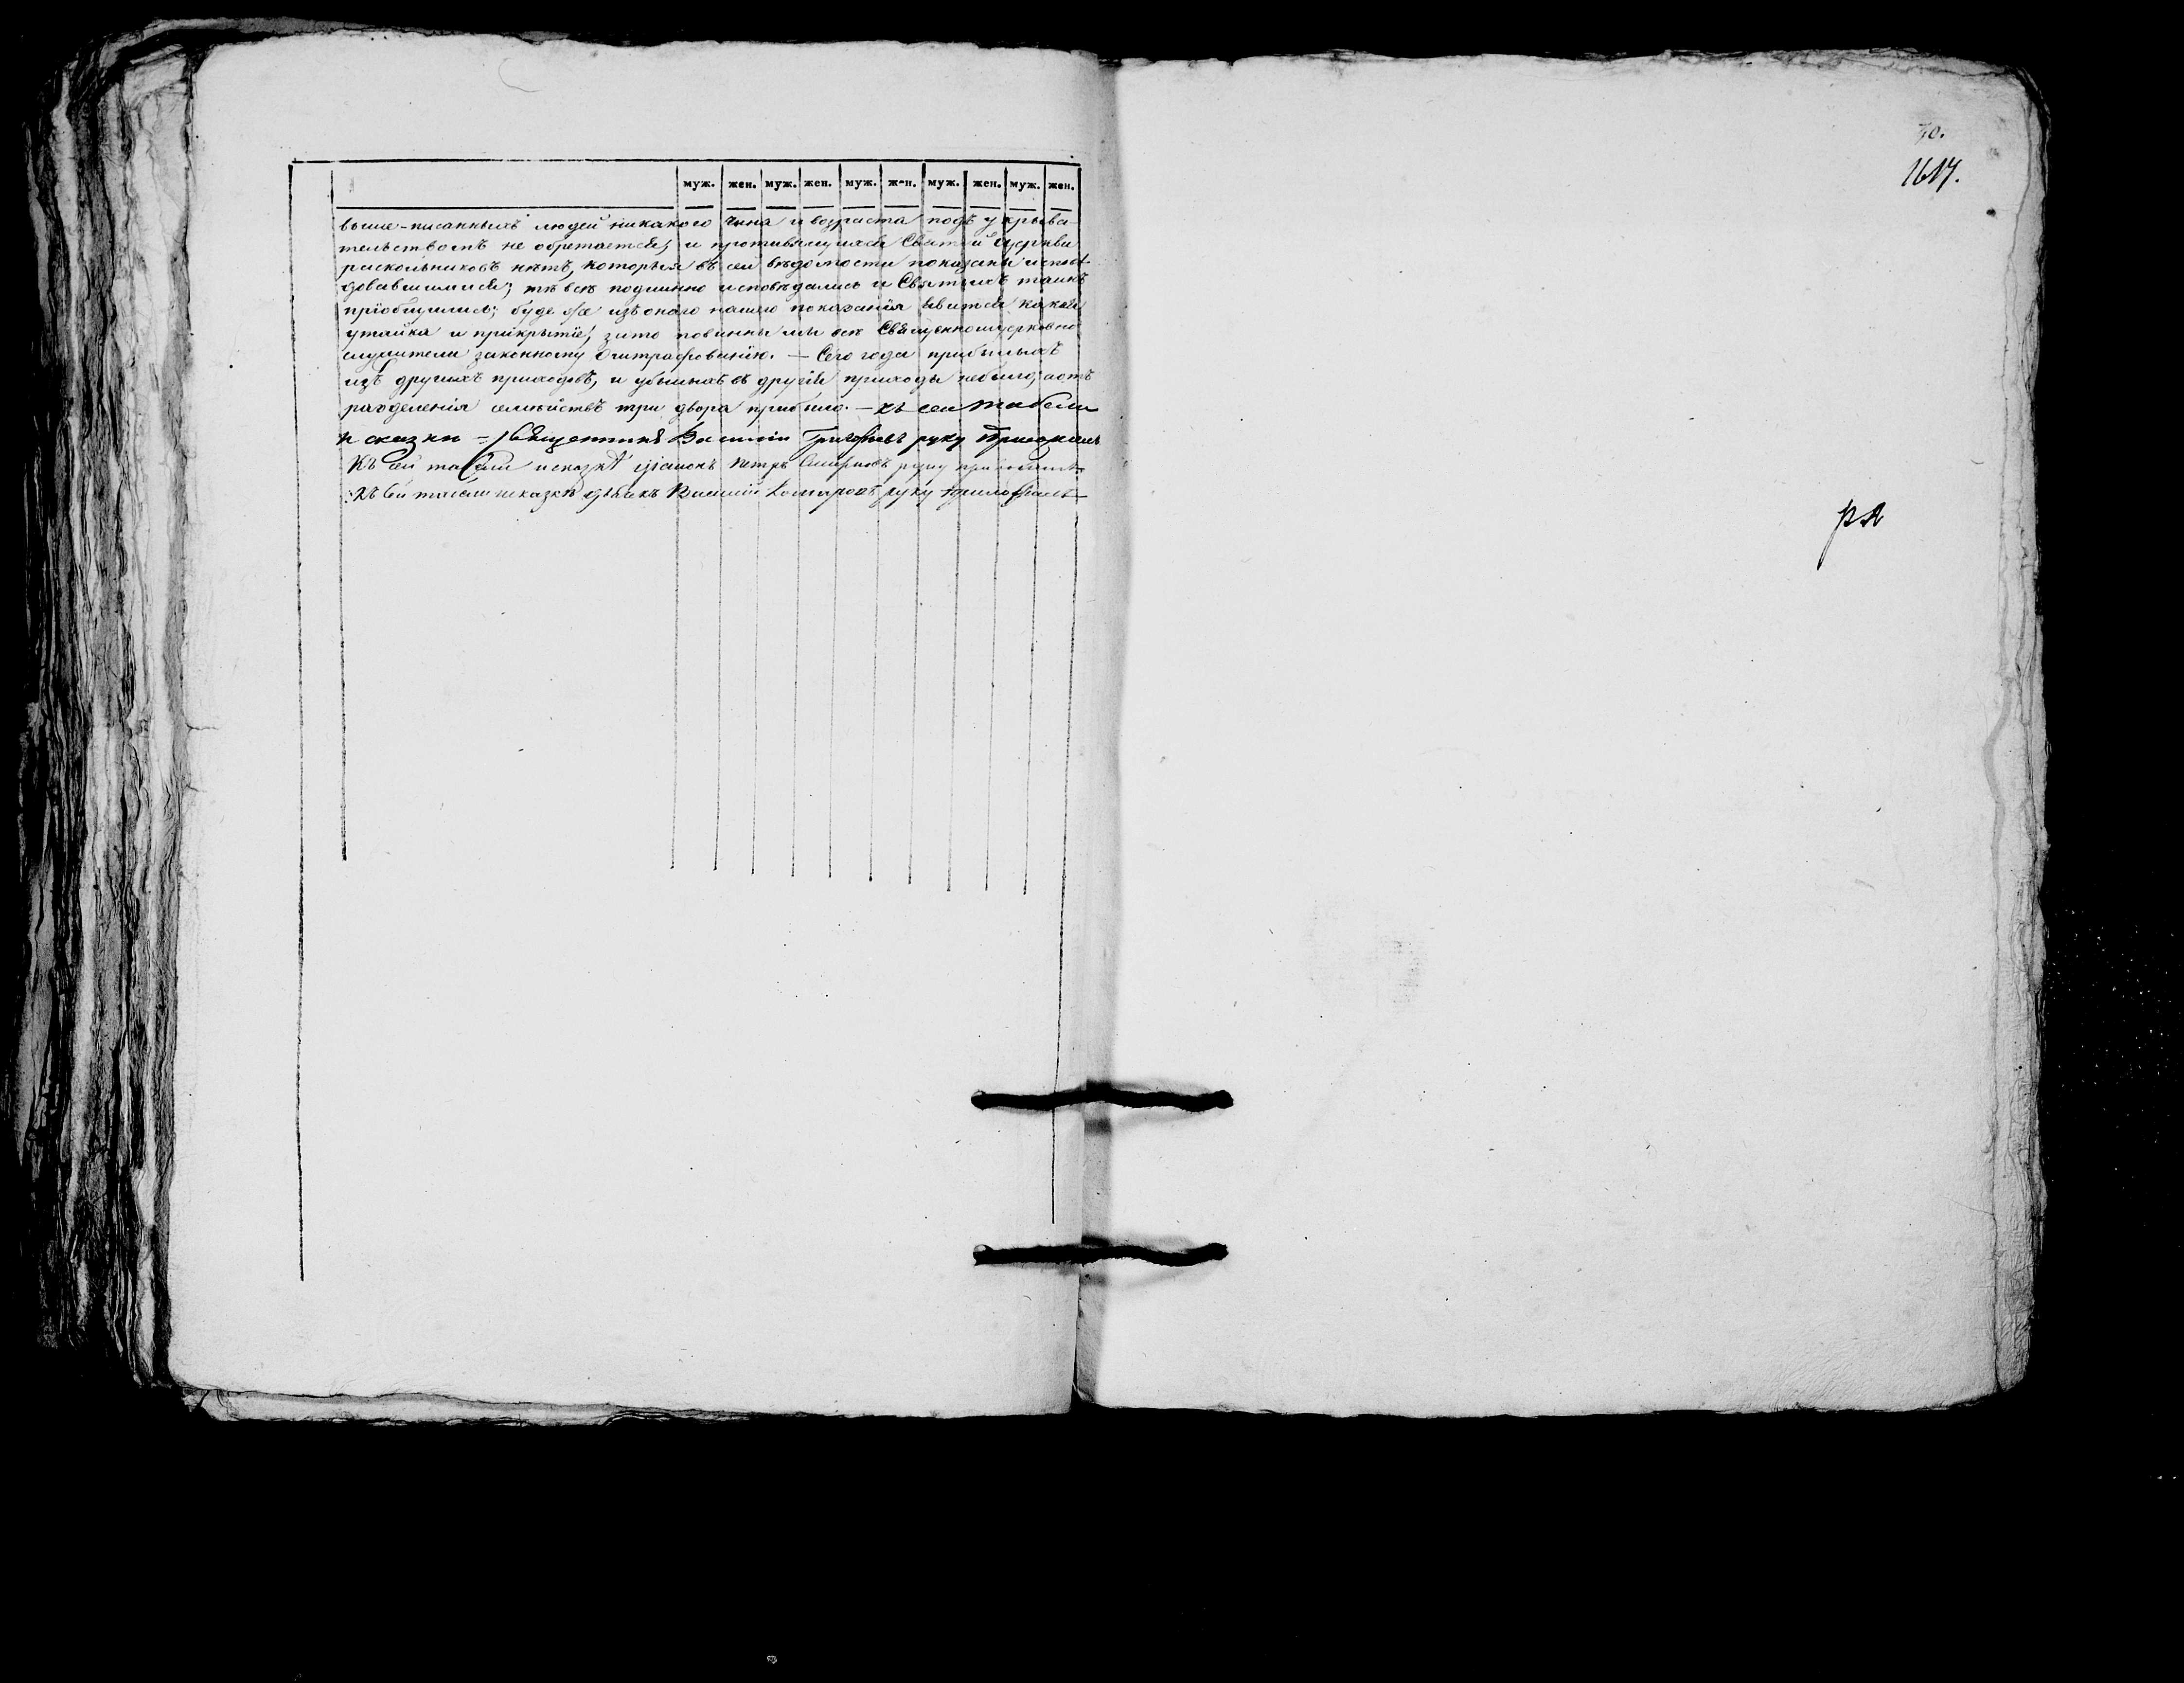 муж. жен. муж. жен. муж. жен. муж. жен. муж. жен.
выше-писанныхъ людей никакого чина и возраста подъ укрыва-
тельствомъ не обретается, и противящихся Святой Церкви
раскольниковъ нѣтъ, которыя въ сей вѣдомости показаны испов-
довавшимися; тѣ всѣ подлинно исповѣдались и Святыхъ таинъ
пріобщились; буде же изъ оного нашего показанія явится какая
утайка и прикрытіе, зато повинны мы всѣ Священноцерковно
служители законному оштрафованію. — Сего года прибылыхъ
изъ другихъ приходовъ, и убылыхъ въ другія приходы небыло, аотъ
разделенія семействъ три двора прибыло. — къ сей табели
и сказки — Священникъ Василій Григорьевъ руку приложилъ
Къ сей табели исказкѣ діаконъ Петръ Смирновъ руку приложилъ
Къ сей табели исказкѣ дьячекъ Василій Комаровъ руку приложилъ
70.
1617.
ра